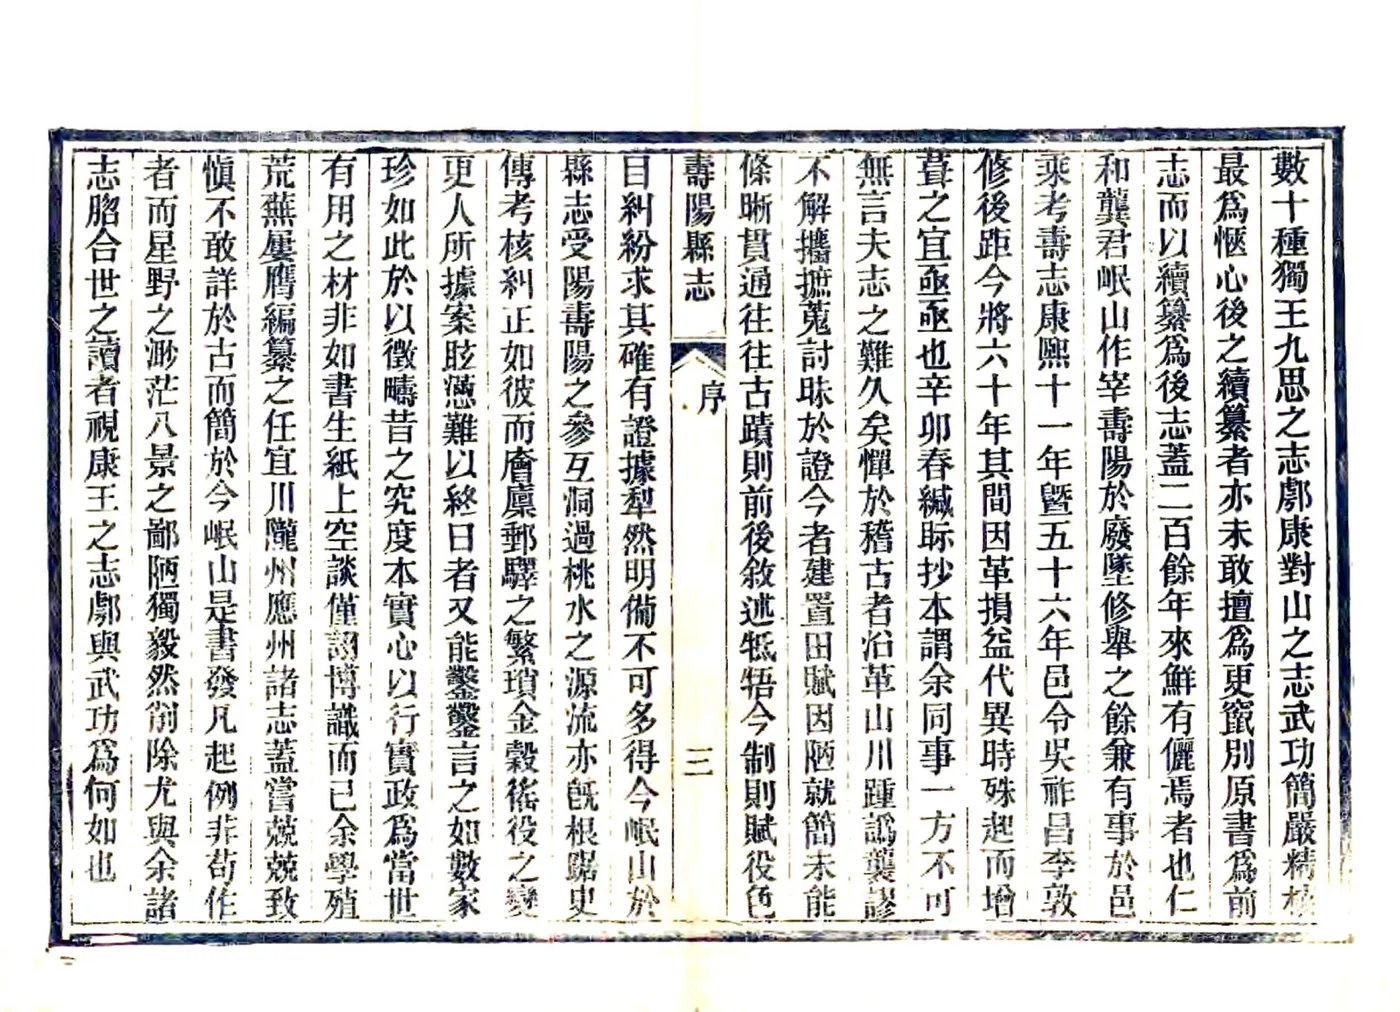 數十種獨王九思之志鄠康對山之志武功簡嚴精核
最爲愜心後之續纂者亦未敢擅爲更竄別原書爲前
志而以續纂爲後志蓋二百餘年來鮮有儷焉者也仁
和龔君岷山作宰壽陽於廢墜修舉之餘兼有事於邑
乘考壽志康熙十一年曁五十六年邑令吳祚昌李敦
修後距今將六十年其間因革損益代異時殊起而增
葺之宜亟亟也辛卯春緘眎抄本謂余同事一方不可
無言夫志之難久矣憚於稽古者沿革山川踵譌襲謬
不解攟摭蒐討昧於證今者建置田賦因陋就簡未能
條晰貫通往往古蹟則前後敘述牴牾今制則賦役色
壽陽縣志
序
三
目糾紛求其確有證據犁然明備不可多得今岷山於
縣志受陽壽陽之參互洞過桃水之源流亦旣根踞史
傳考核糾正如彼而廥廩郵驛之繁瑣金穀徭役之變
更人所據案眩懑難以終日者又能鑿鑿言之如數家
珍如此於以徵疇昔之究度本實心以行實政爲當世
有用之材非如書生紙上空談僅詡博識而已余學殖
荒蕪屢膺編纂之任宜川隴州應州諸志蓋嘗兢兢致
愼不敢詳於古而簡於今岷山是書發凡起例非苟作
者而星野之渺茫八景之鄙陋獨毅然削除尤與余諸
志脗合世之讀者視康王之志鄠與武功爲何如也